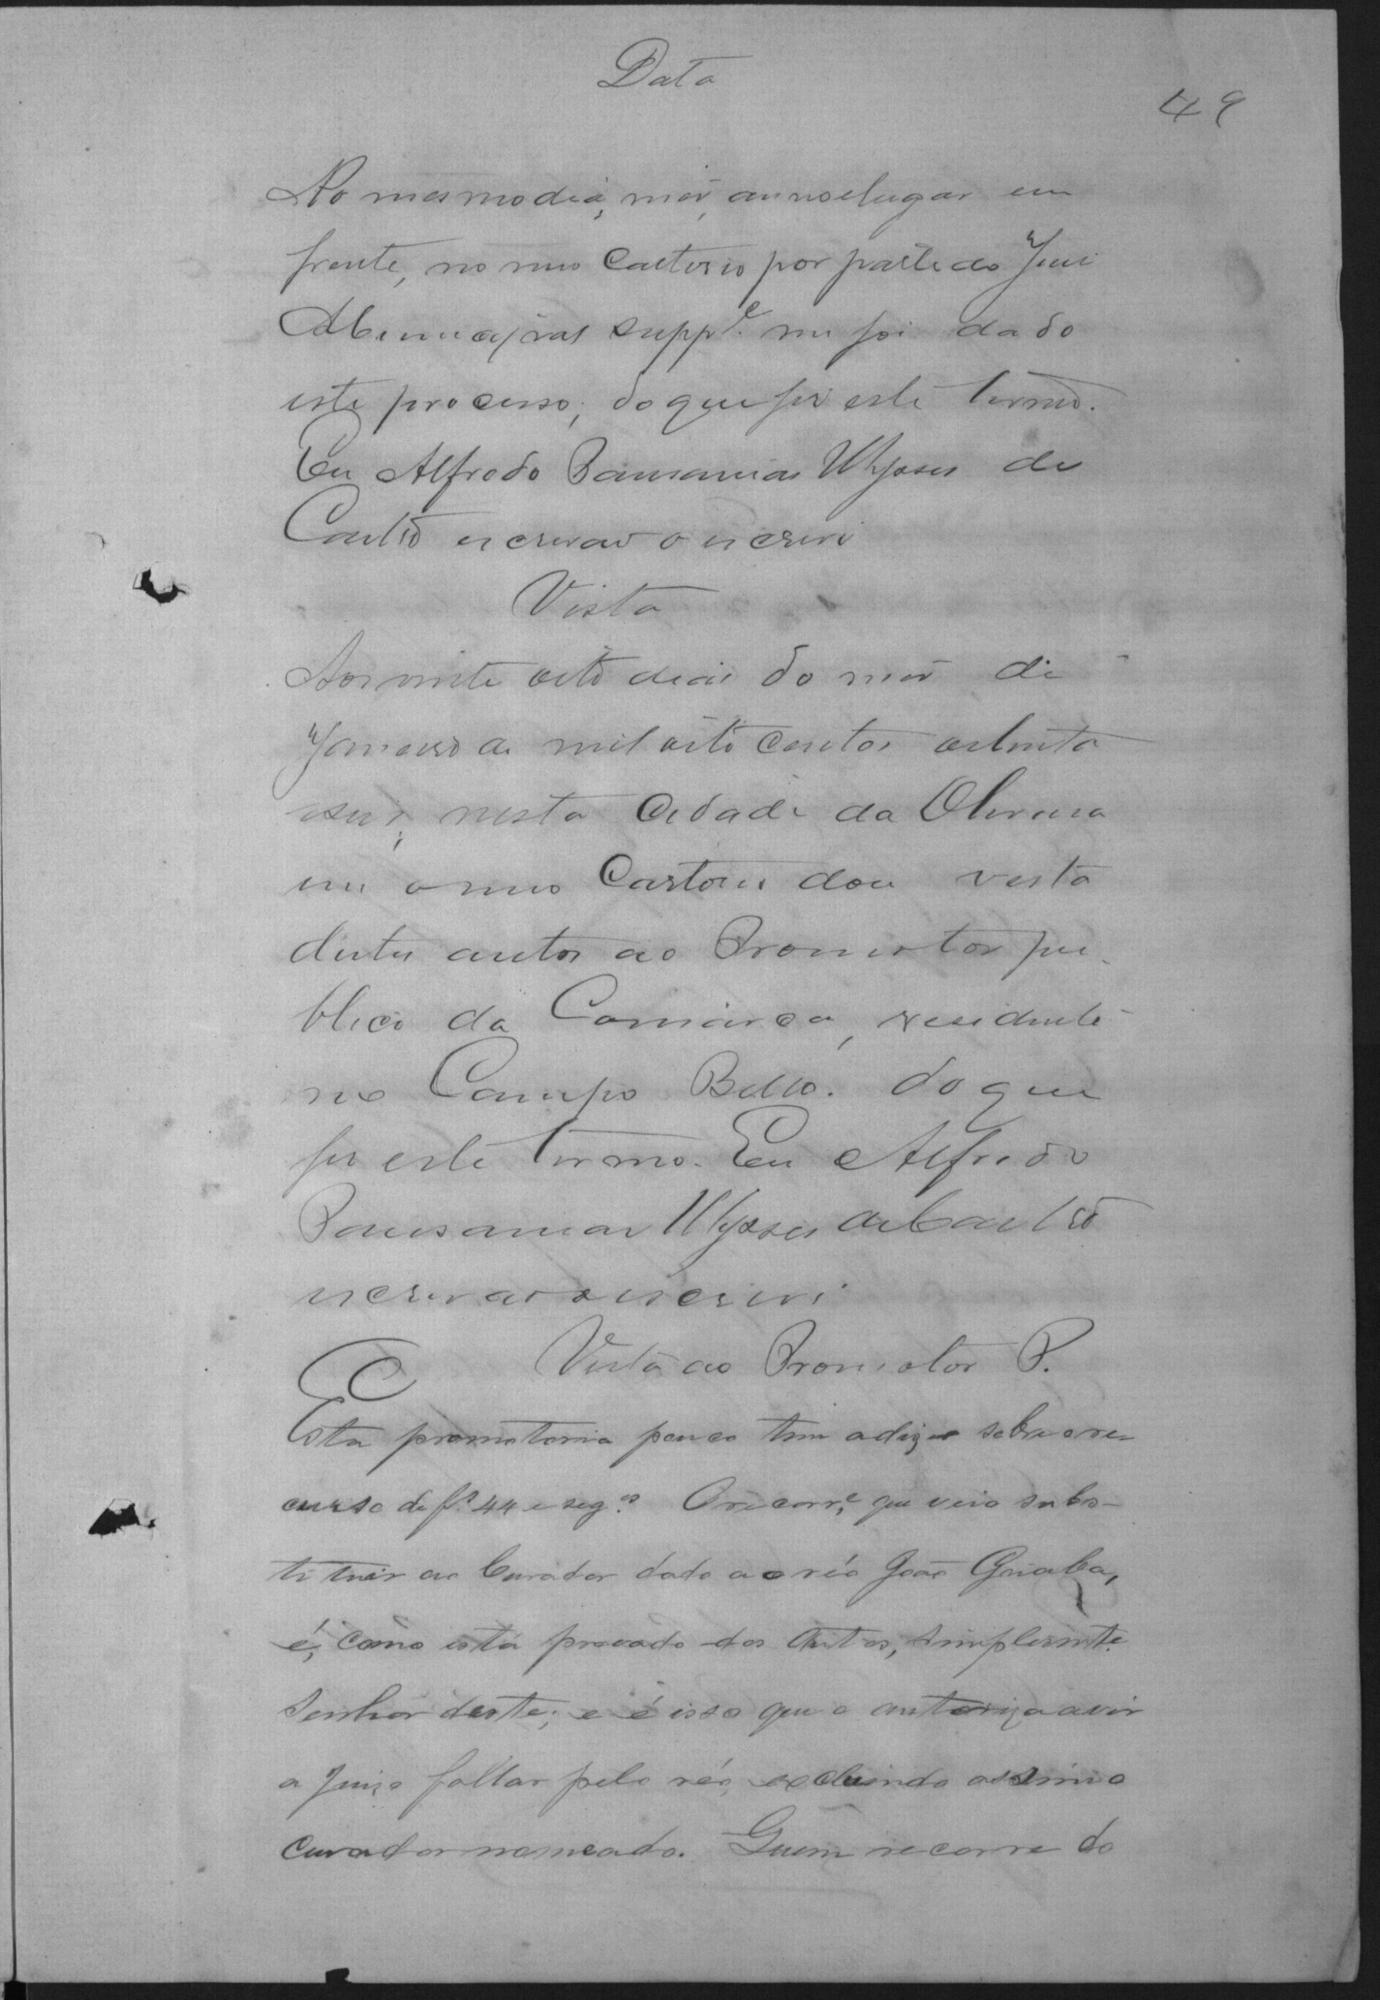 Data
49
No mesmo dia, mes, anno e lugar em
frente, no meu Cartorio por parte do Juiz
Municipal suppe. me foi dado
este processo, do que fiz este termo.
Eu Alfredo Pausanias Ulysses de
Castro escrivão o escrevi
Vista
Aos vinte oito dias do mes de
Janeiro de mil oito centos oitenta
e seis, nesta Cidade da Oliveira
em o meu Cartorio dou vista
destes autos ao Promotor pu-
blico da Comarca, residente
no Campo Bello. do que
fiz este termo. Eu Alfredo
Pausanias Ulysses de Castro
escrivão o escrevi
Vista ao Promotor P.
Esta promotoria pouco tem a dizer sobre o re-
curso de fs. 44 e segos. O recorre. que veio subs-
tituir ao Curador dado ao réo João Goiaba,
é, como está provado dos autos, simplesmte.
senhor deste; e é isso que o autoriza a vir
a Juizo fallar pelo réo, excluindo assim o
curador nomeado. Quem recorre do